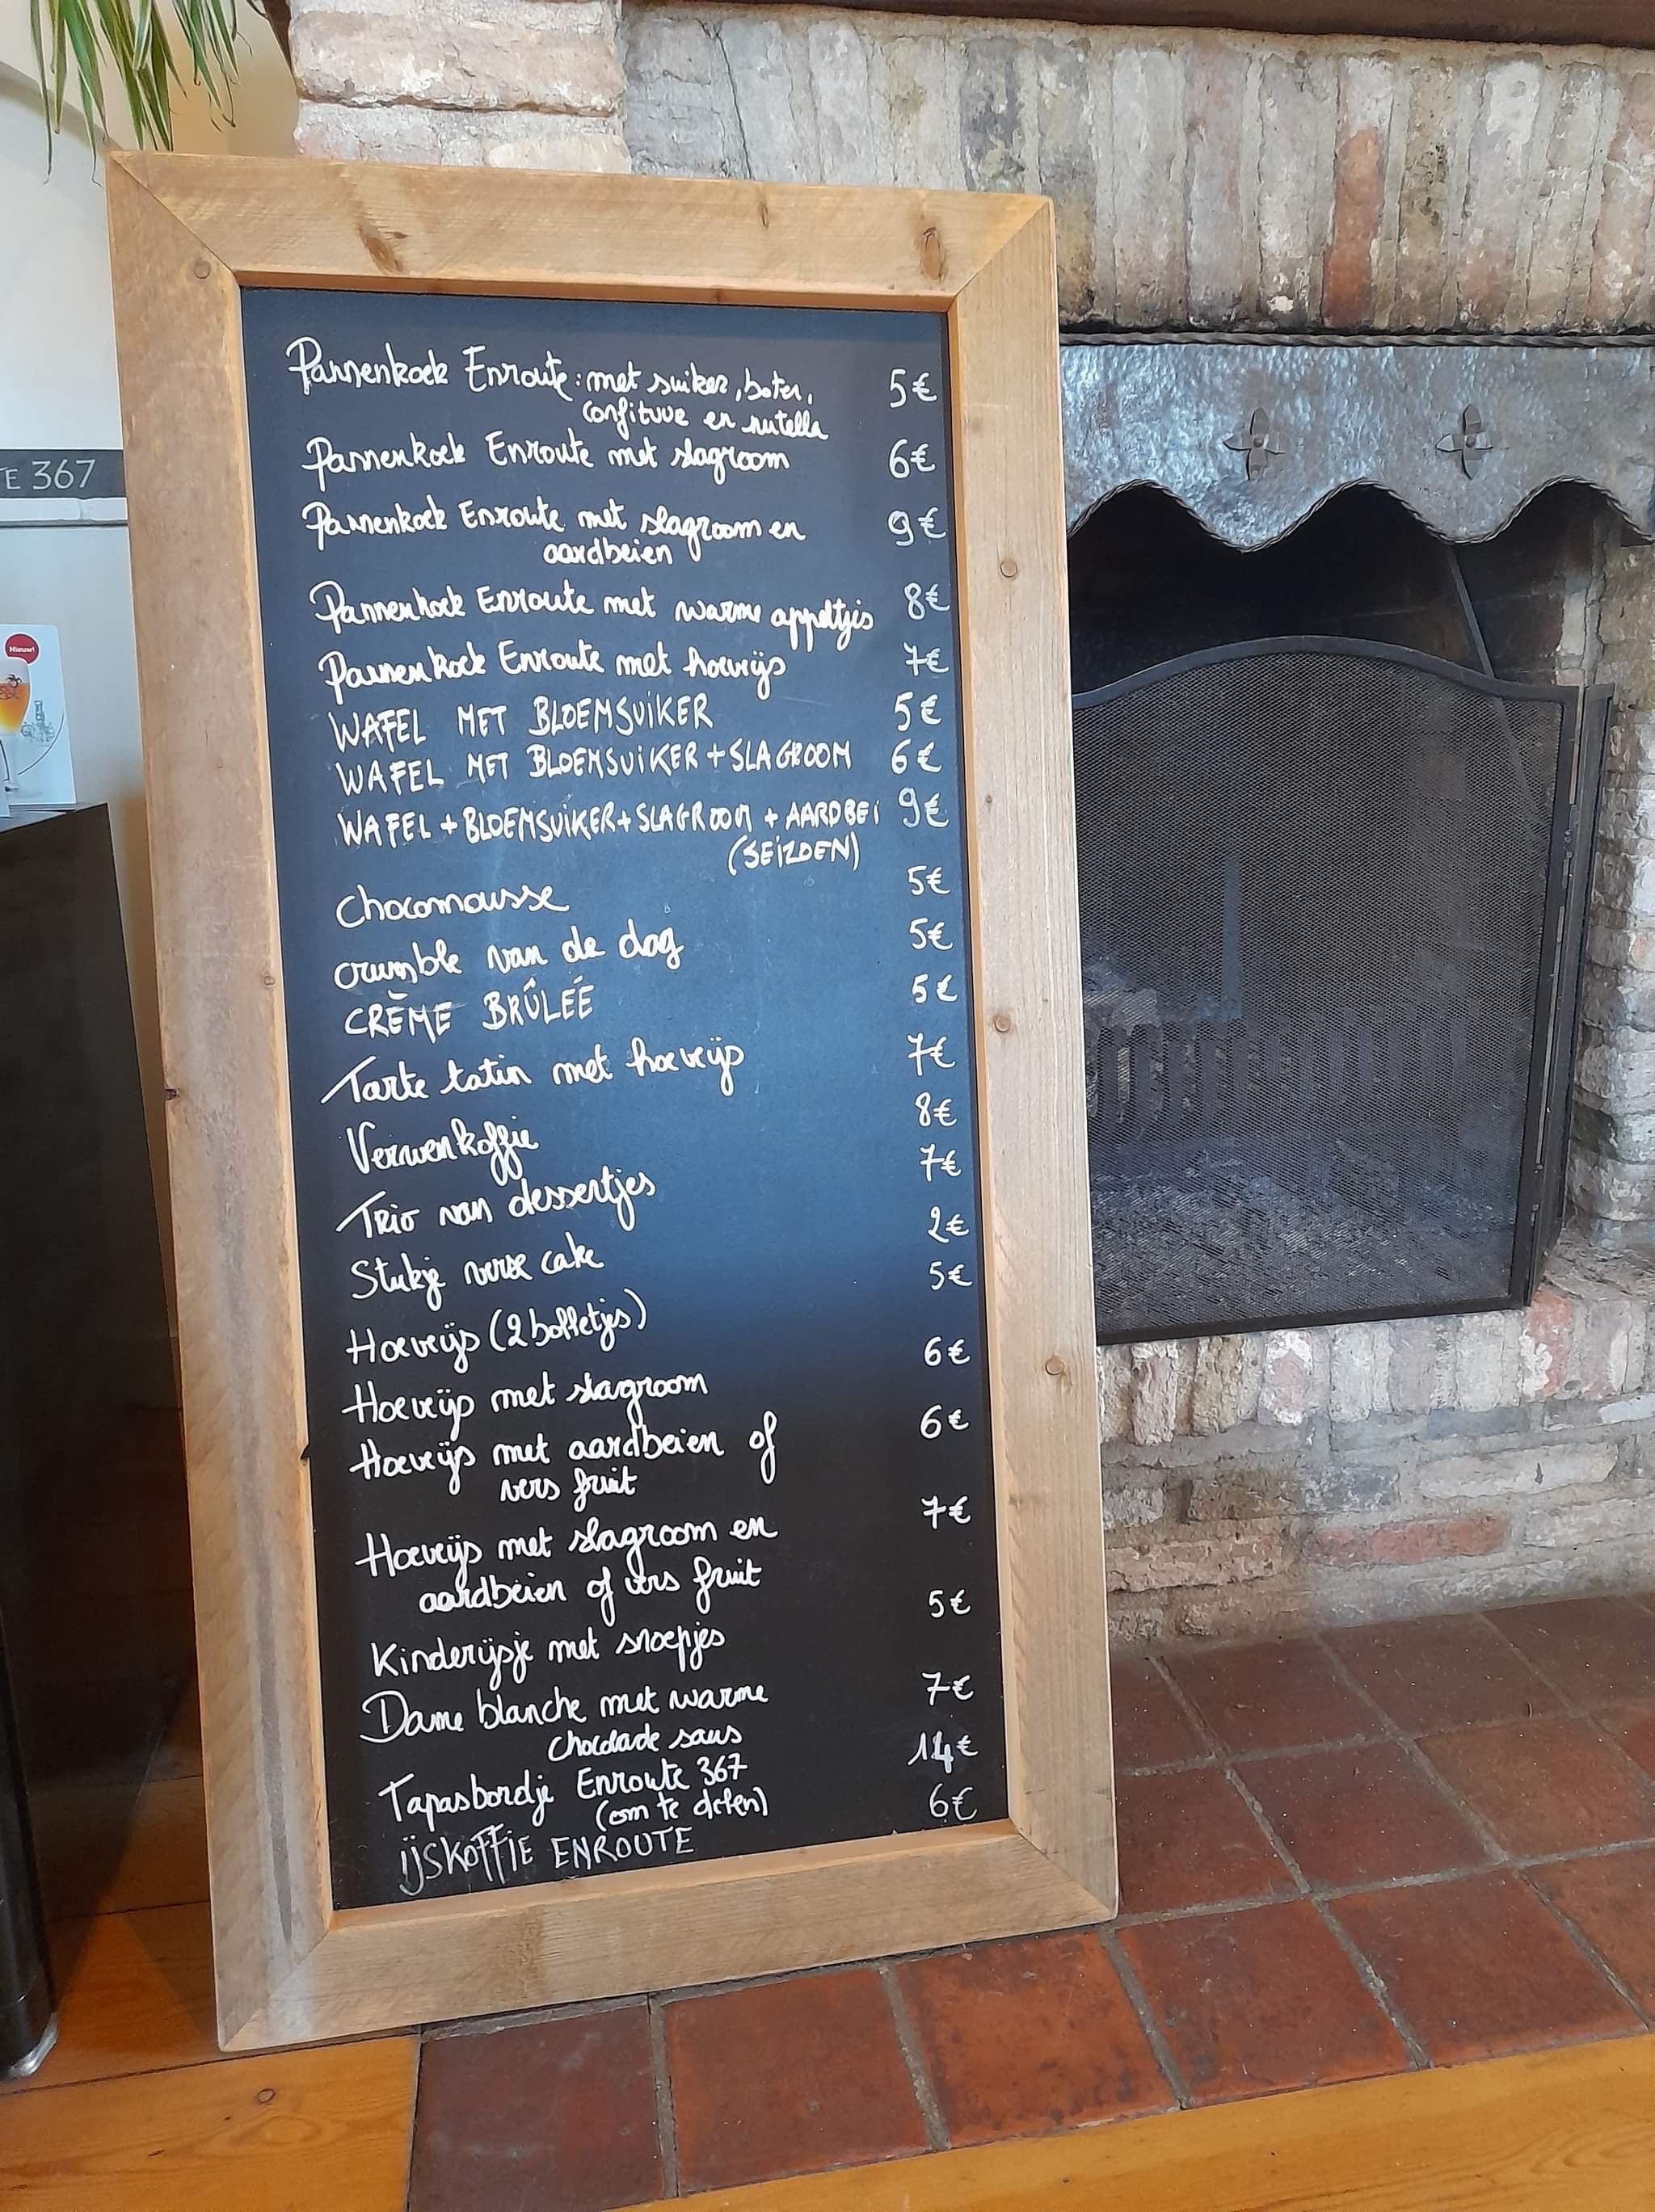 Pannenkoek Enroute: met suiker, boter, 5€
confituur en nutella
Pannenkoek Enroute met slagroom 6€
Pannenkoek Enroute met slagroom en 9€
aardbeien
Pannenkoek Enroute met warme appeltjes 8€
Pannenkoek Enroute met hoeveijs 7€
WAFEL MET BLOEMSUIKER 5€
WAFEL MET BLOEMSUIKER + SLAGROOM 6€
WAFEL + BLOEMSUIKER + SLAGROOM + AARDBEI 9€
(SEIZOEN)
Chocomousse 5€
crumble van de dag 5€
CRÈME BRÛLÉE 5€
Tarte tatin met hoeveijs 7€
Verwenkoffie 8€
Trio van dessertjes 7€
Stukje verse cake 2€
Hoeveijs (2 bolletjes) 5€
Hoeveijs met slagroom 6€
Hoeveijs met aardbeien of 6€
vers fruit
Hoeveijs met slagroom en 7€
aardbeien of vers fruit
Kinderijsje met snoepjes 5€
Dame blanche met warme 7€
chocolade saus
Tapasbordje Enroute 367 14€
(om te delen)
IJSKOFFIE ENROUTE 6€
TE 367
Nieuw!